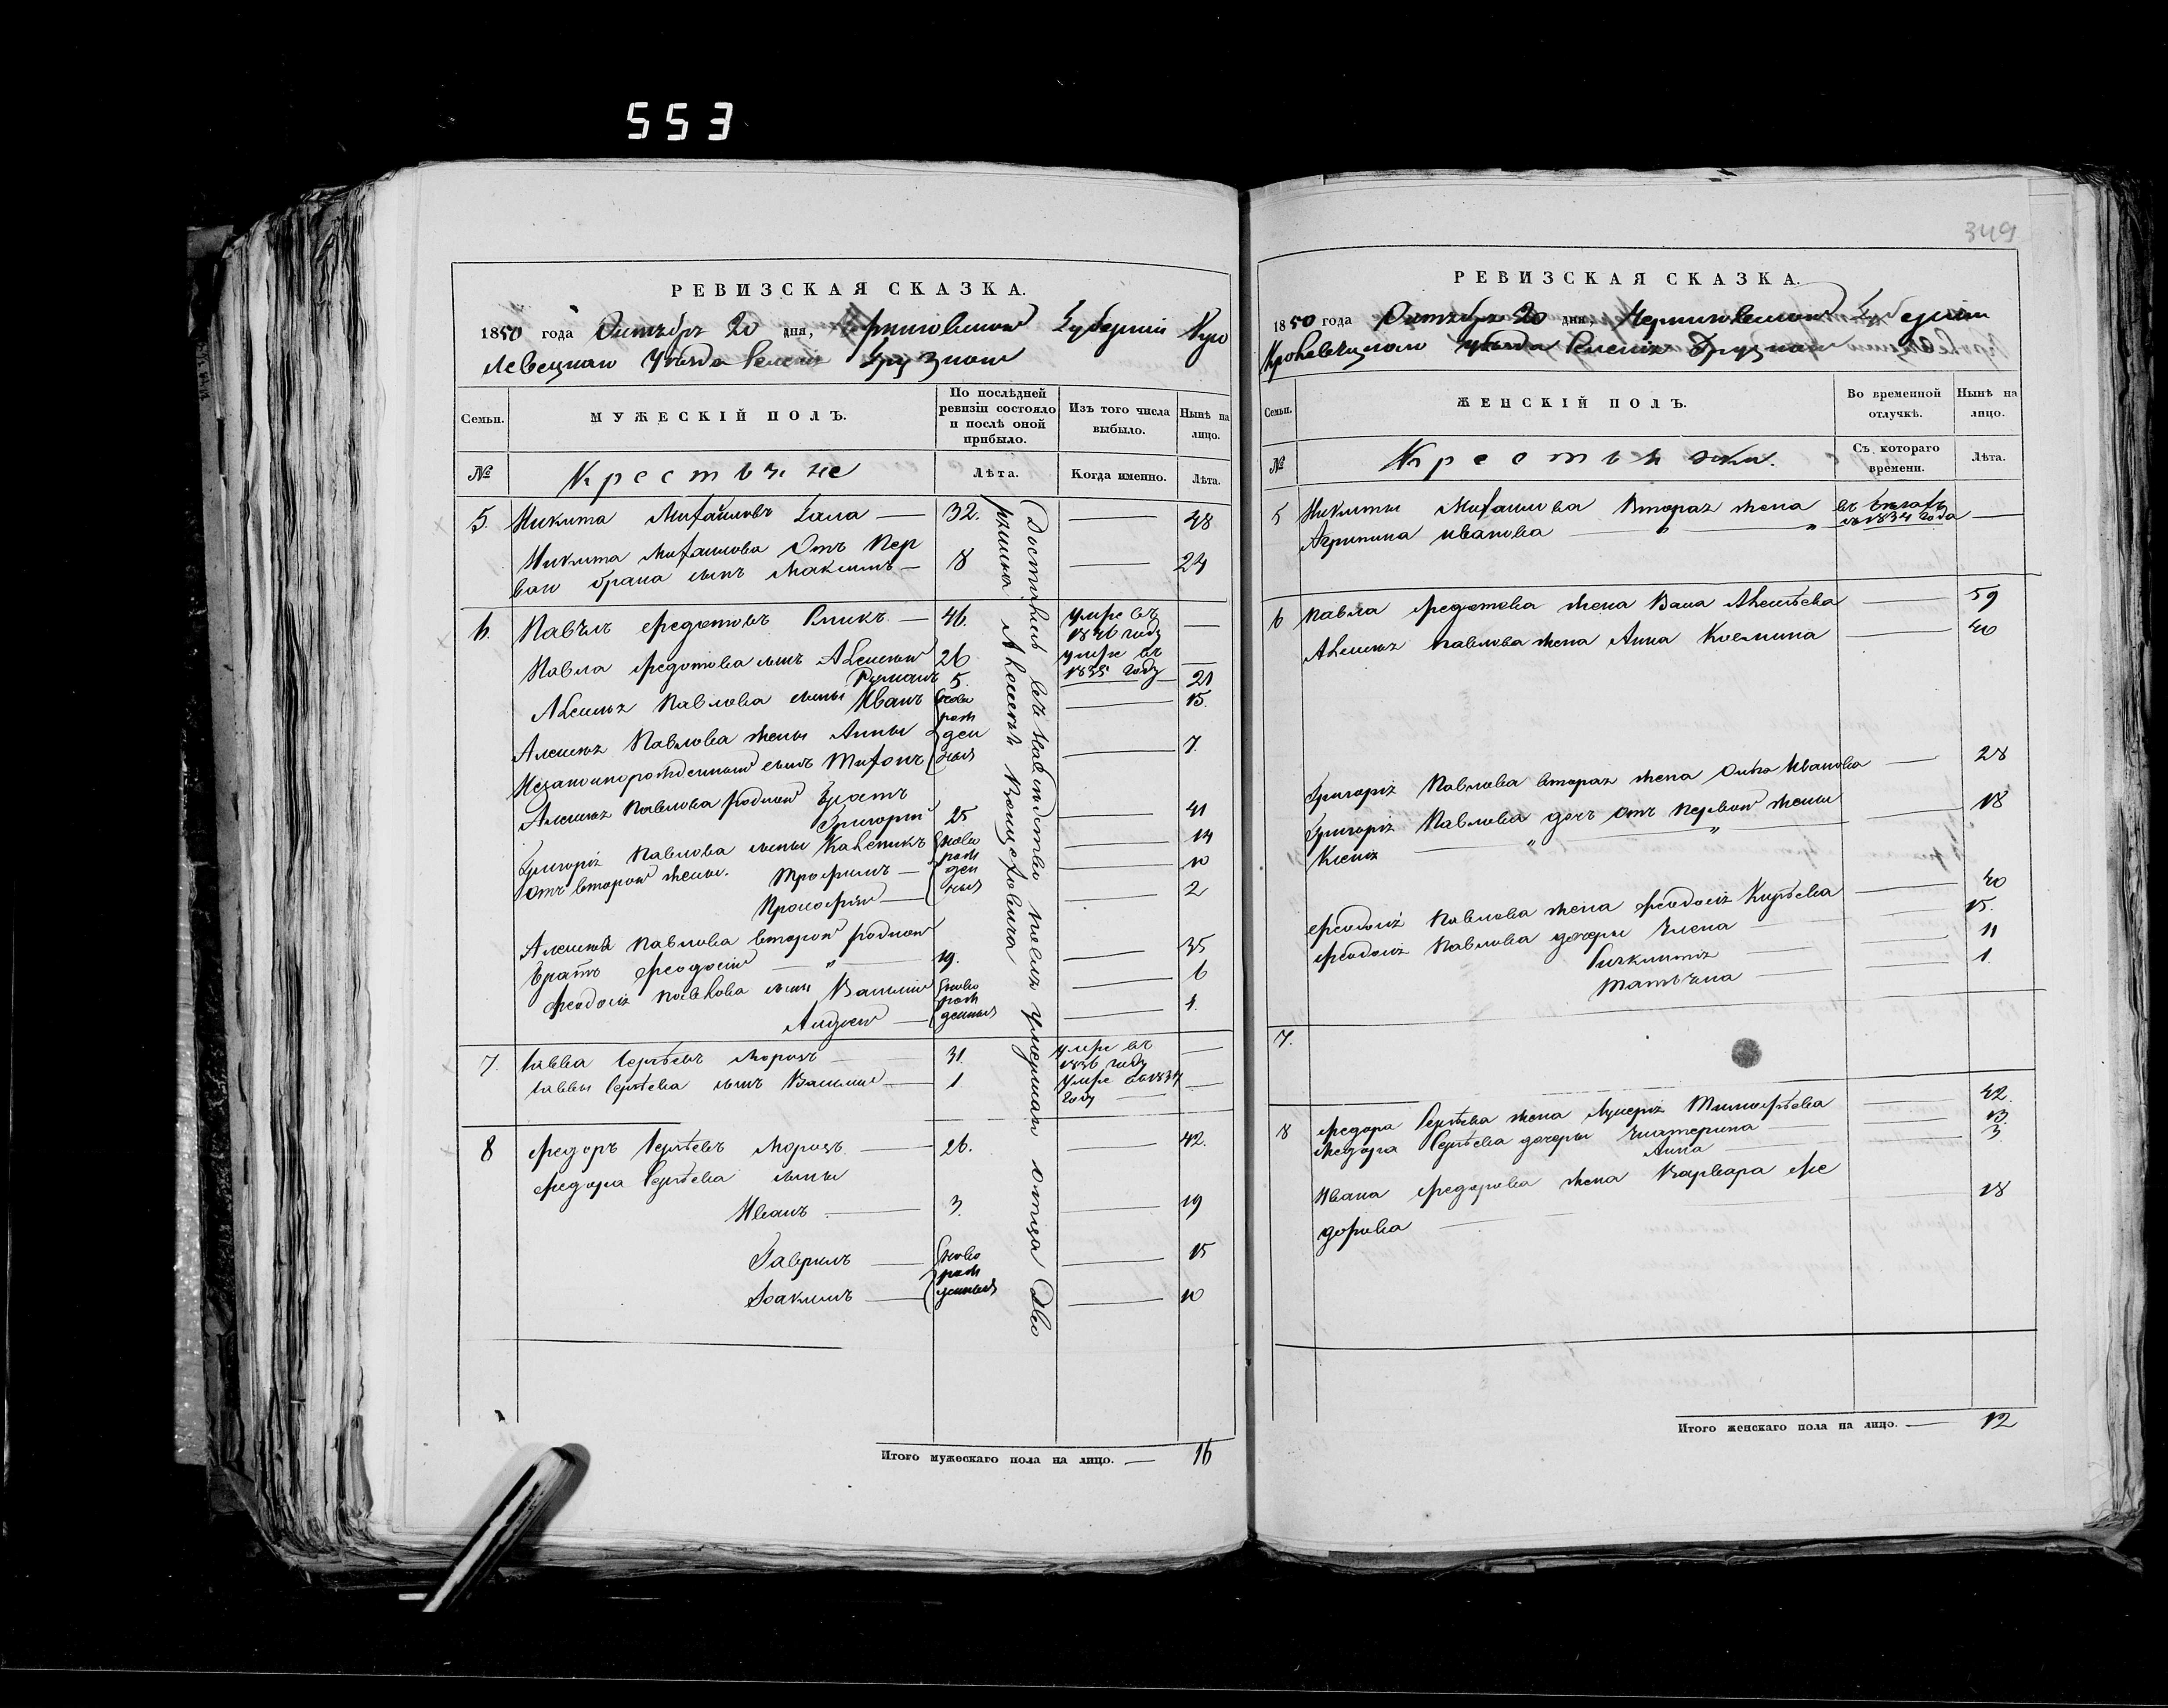 553
349
РЕВИЗСКАЯ СКАЗКА.
1850 года Октября 20 дня, Черниговской Губернии Кро
левецкаго Уѣзда Селенія
Семьи.
МУЖЕСКІЙ ПОЛЪ.
По послѣдней ревизіи состояло и послѣ оной прибыло.
Изъ того числа выбыло.
Нынѣ на лицо.
№
Крестьяне
Лѣта.
Когда именно.
Лѣта.
5. Никита Михайловъ Гала — 32. — 48
Никита Михайлова Отъ Пер
ваго брака сынъ Максимъ — 18 — 24
6. Павелъ Федотовъ — 46. умре въ 1846 году —
Павла Федотова сынъ Алексей 26 умре въ 1835 году —
Романъ 5. — 21
Алексея Павлова сыны Иванъ ново рож ден ныя — 15.
Алексея Павлова жены Анны
Незаконорожденный сынъ Тихонъ — 7
Алексея Павлова родной братъ
Григорий 25 — 41
Григорія Павлова сыны Каленикъ ново рож ден ныя — 14
отъ второй жены. Трофимъ — — 10
Прокофий — — 2
Алексея Павлова второй родной
братъ Феодосий — „ — 19. — 35
Феодосія Павлова сыны Василий ново рож денныя — 6
Андрей — — 1.
7. Савва Сергѣевъ Морозъ — 31. умре въ 1836 году —
Саввы Сергѣева сынъ Василий — 1 Умре въ 1834 году —
8 Федоръ Сергѣевъ Морозъ — 26. — 42.
Федора Сергѣева сыны
Иванъ — 3. — 19
Гаврилъ — ново рож денныя — 15
Иоакимъ — — 10
Доставшись въ наследство после умершаго отца Дво
рянина Алексея
Итого мужескаго пола на лицо. — 16
РЕВИЗСКАЯ СКАЗКА.
1850 года Октября 20 дня, Черниговской Губернии
Кролевецкаго Уѣзда Селенія
Семьи.
ЖЕНСКІЙ ПОЛЪ.
Во временной отлучкѣ.
Нынѣ на лицо.
№
Крестьянки.
Съ котораго времени.
Лѣта.
5 Никиты Михайлова Вторая жена въ бегахъ
Агрипина Иванова — „ — „ съ 1834 года —
6 Павла Федотова жена Васа Алексѣева — 59
Алексея Павлова жена Анна Козмина — 40
Григорія Павлова вторая жена Олга Иванова — 28
Григорія Павлова доч Отъ первой жены — 18
Ксенія — „ — „
Феодосія Павлова жена Феодосія — 40
Феодосія Павлова дочери Елена — 15.
— 11
Татьяна — 1.
7.
8 Федора Сергѣева жена Лукерія Тимофѣева — 42.
Федора Сергѣева дочери Екатерина — 13.
Анна — 3.
Ивана Федорова жена Варвара Фе
дорова — 18
Итого женскаго пола на лицо. — 12